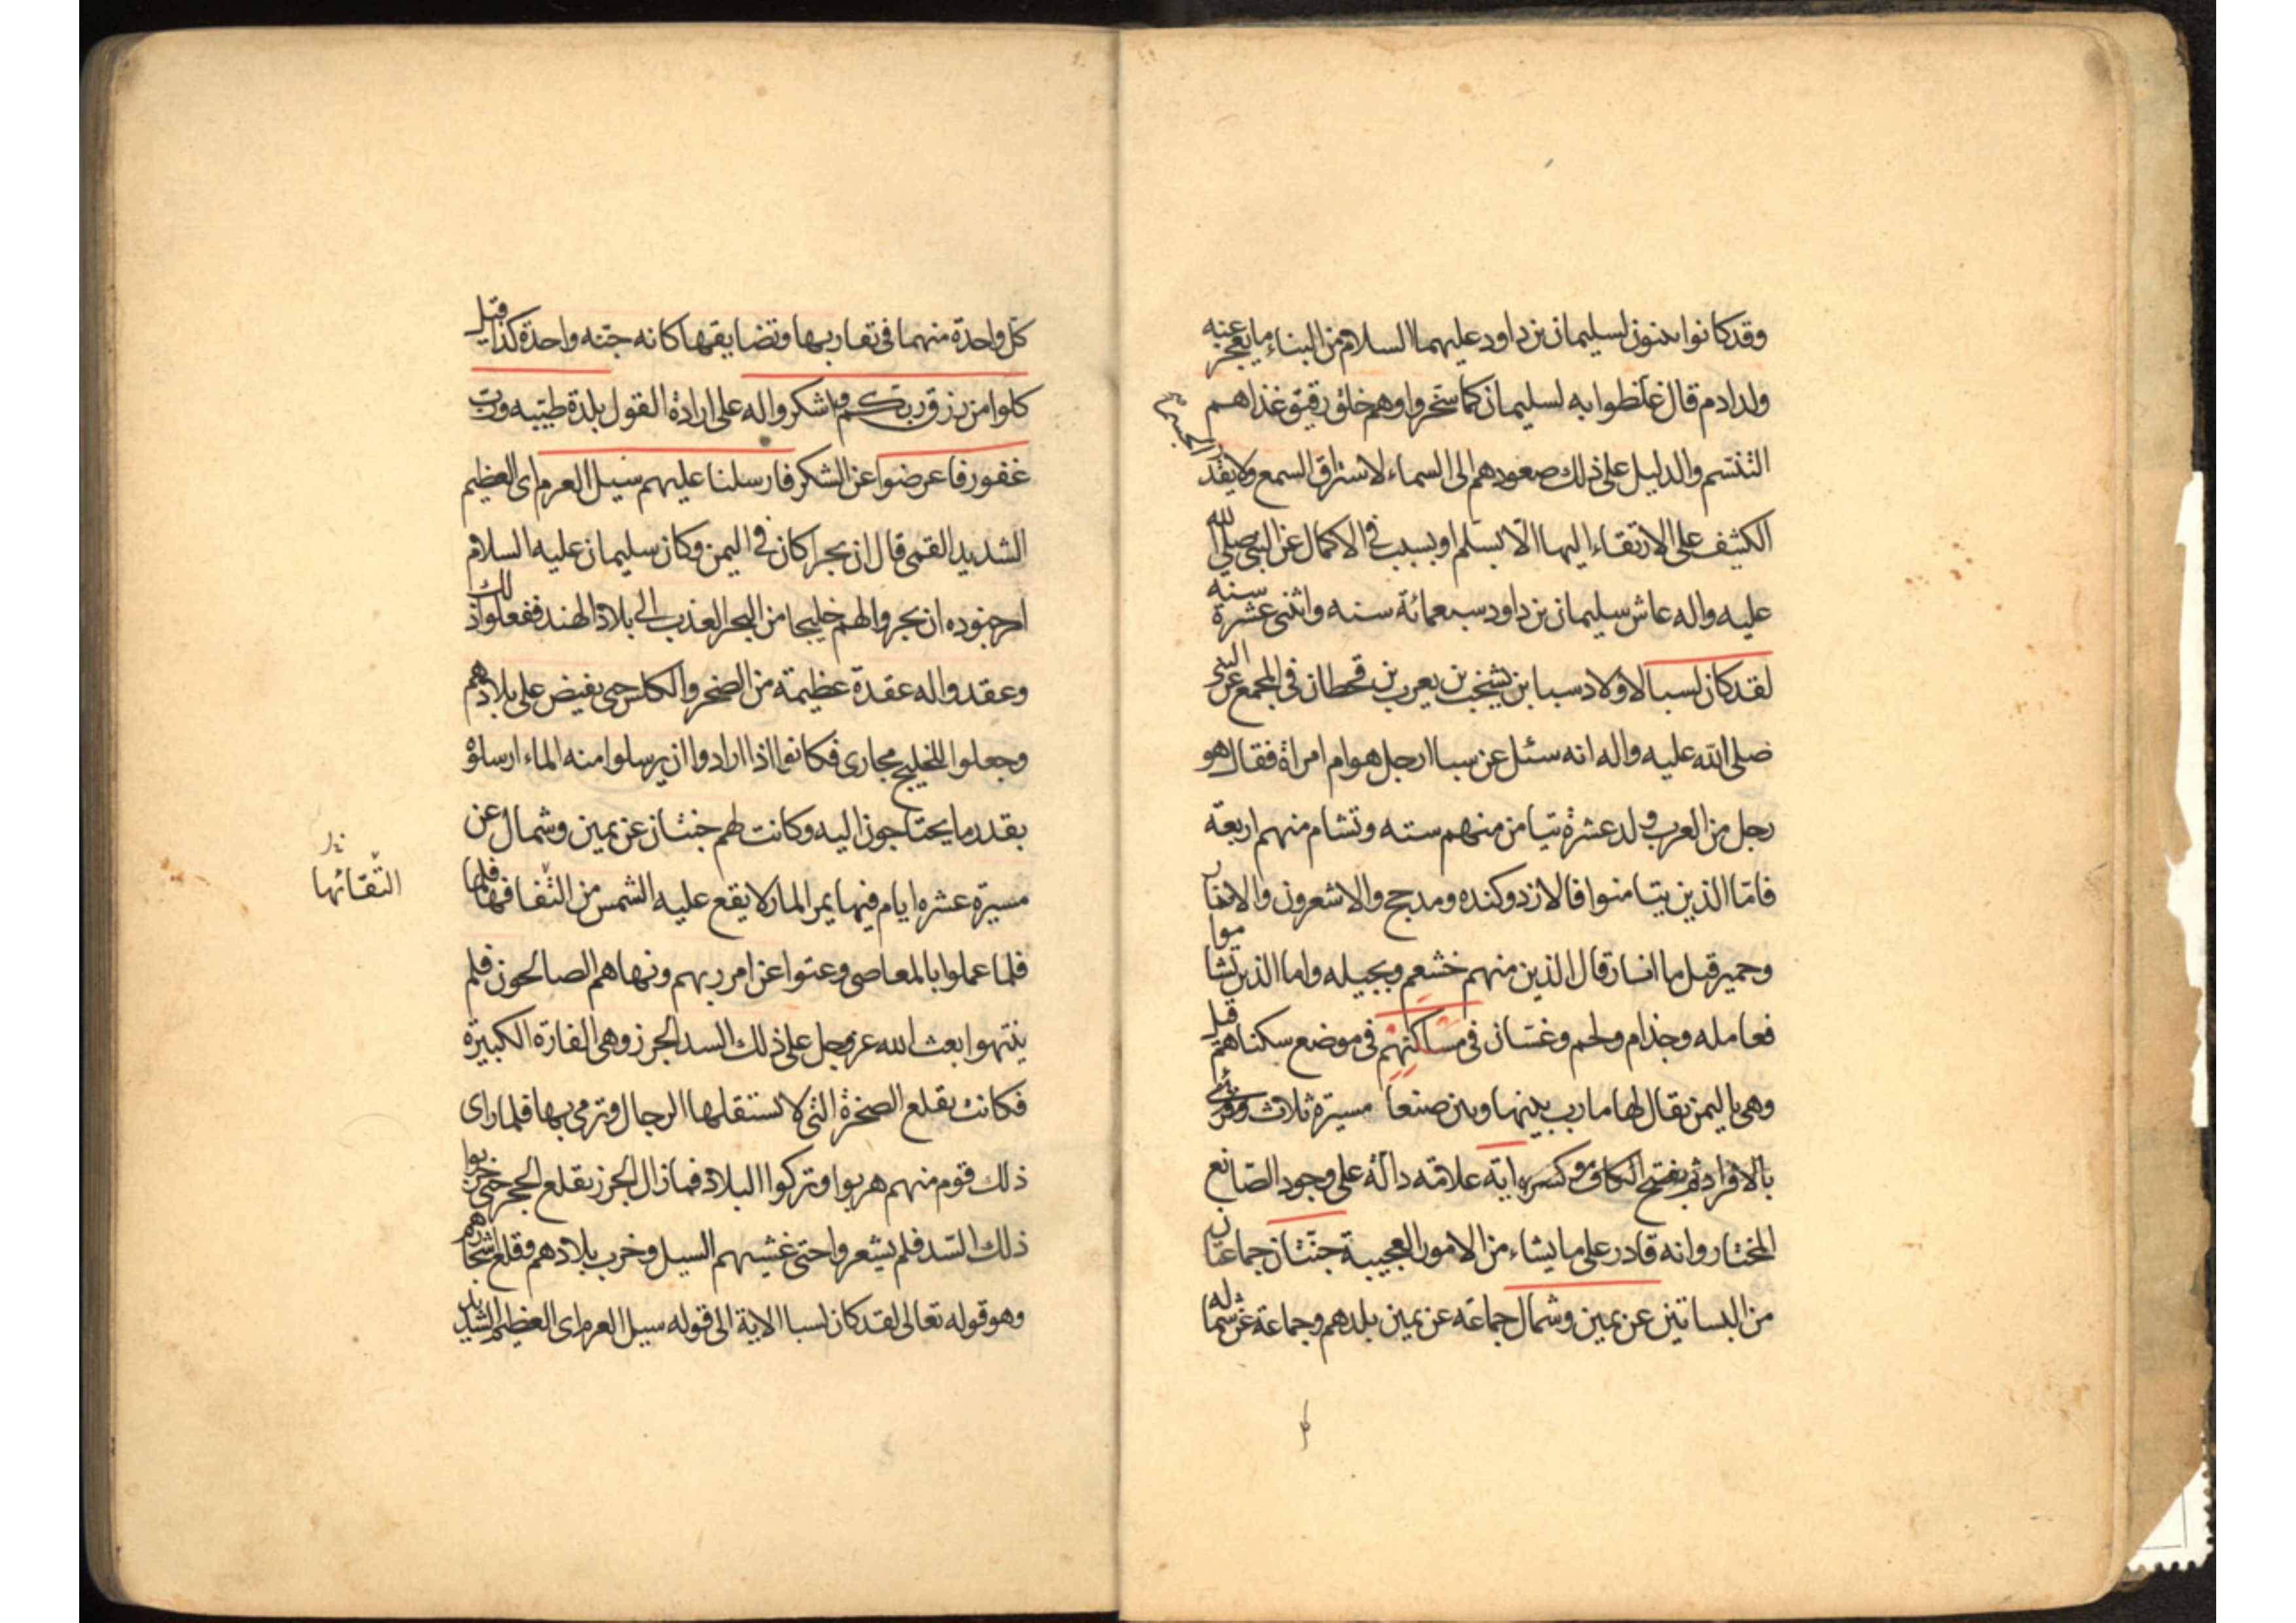 وقد كانوا يبنون لسليمان بن داود عليهما السلام من البناء ما يعجز عنه
ولد ادم قال غلظوا به لسليمان كما سخروا وهم خلق رقيق غذاهم
التنسم والدليل على ذلك صعودهم الى السماء لاستراق السمع ولا يقدر الجسم
الكثيف على الارتقاء اليها الا بسلم او بسبب في الاكمال عن النبي صلى الله
عليه واله عاش سليمان بن داود سبعمائة سنه واثنى عشرة سنه
لقد كان لسبا لاولاد سبا بن يشخب بن يعرب بن قحطان في المجمع عن النبي
صلى الله عليه واله انه سئل عن سبا ارجل هو ام امراة فقال هو
رجل من العرب ولد عشرة تيامن منهم سته وتشام منهم اربعة
فاما الذين يتامنوا فالازد وكنده ومدحج والاشعرون والانمار
وحمير قيل ما انمار قال الذين منهم خشعم وبجيله واما الذين تشاموا
فعامله وجذام ولخم وغسان في مساكنهم في موضع سكناهم قيل
وهي باليمن يقال لها مارب بينها وبين صنعا مسيرة ثلاث وقرئ
بالافراد ثم بفتح الكاف وكسره اية علامة دالة على وجود الصانع
المختار وانه قادر على ما يشاء من الامور العجيبة جنتان جماعتان
من البساتين عن يمين وشمال جماعة عن يمين بلدهم وجماعة عن شماله
كل واحدة منهما في تقاربها وتضايقها كانه جنه واحدة كذا قيل
كلوا من رزق ربكم واشكروا له على ارادة القول بلدة طيبه ورب
غفور فاعرضوا عن الشكر فارسلنا عليهم سيل العرم اى العظيم
الشديد القمى قال ان بحرا كان في اليمن وكان سليمان عليه السلام
امر جنوده ان يجروا لهم خليجا من البحر العذب الى بلاد الهند ففعلوا ذلك
وعقدوا له عقدة عظيمة من الصخر والكلس حتى يفيض على بلادهم
وجعلوا للخليج مجارى فكانوا اذا ارادوا ان يرسلوا منه الماء ارسلوه
بقدر ما يحتاجون اليه وكانت لهم جنتان عن يمين وشمال عن
مسيرة عشرة ايام فيها يمر المار لا يقع عليه الشمس من التفافها فلما
التفافها
فلما عملوا بالمعاصى وعتوا عن امر ربهم ونهاهم الصالحون فلم
ينتهوا بعث الله عز وجل على ذلك السد الجرز وهى الفارة الكبيرة
فكانت تقلع الصخرة التى لا تستقلها الرجال وترمى بها فلما راى
ذلك قوم منهم هربوا وتركوا البلاد فما زال الجرز تقلع الحجر حتى خربوا
ذلك السد فلم يشعروا حتى غشيهم السيل وخرب بلادهم وقلع اشجارهم
وهو قوله تعالى لقد كان لسبا الاية الى قوله سيل العرم اى العظيم الشديد